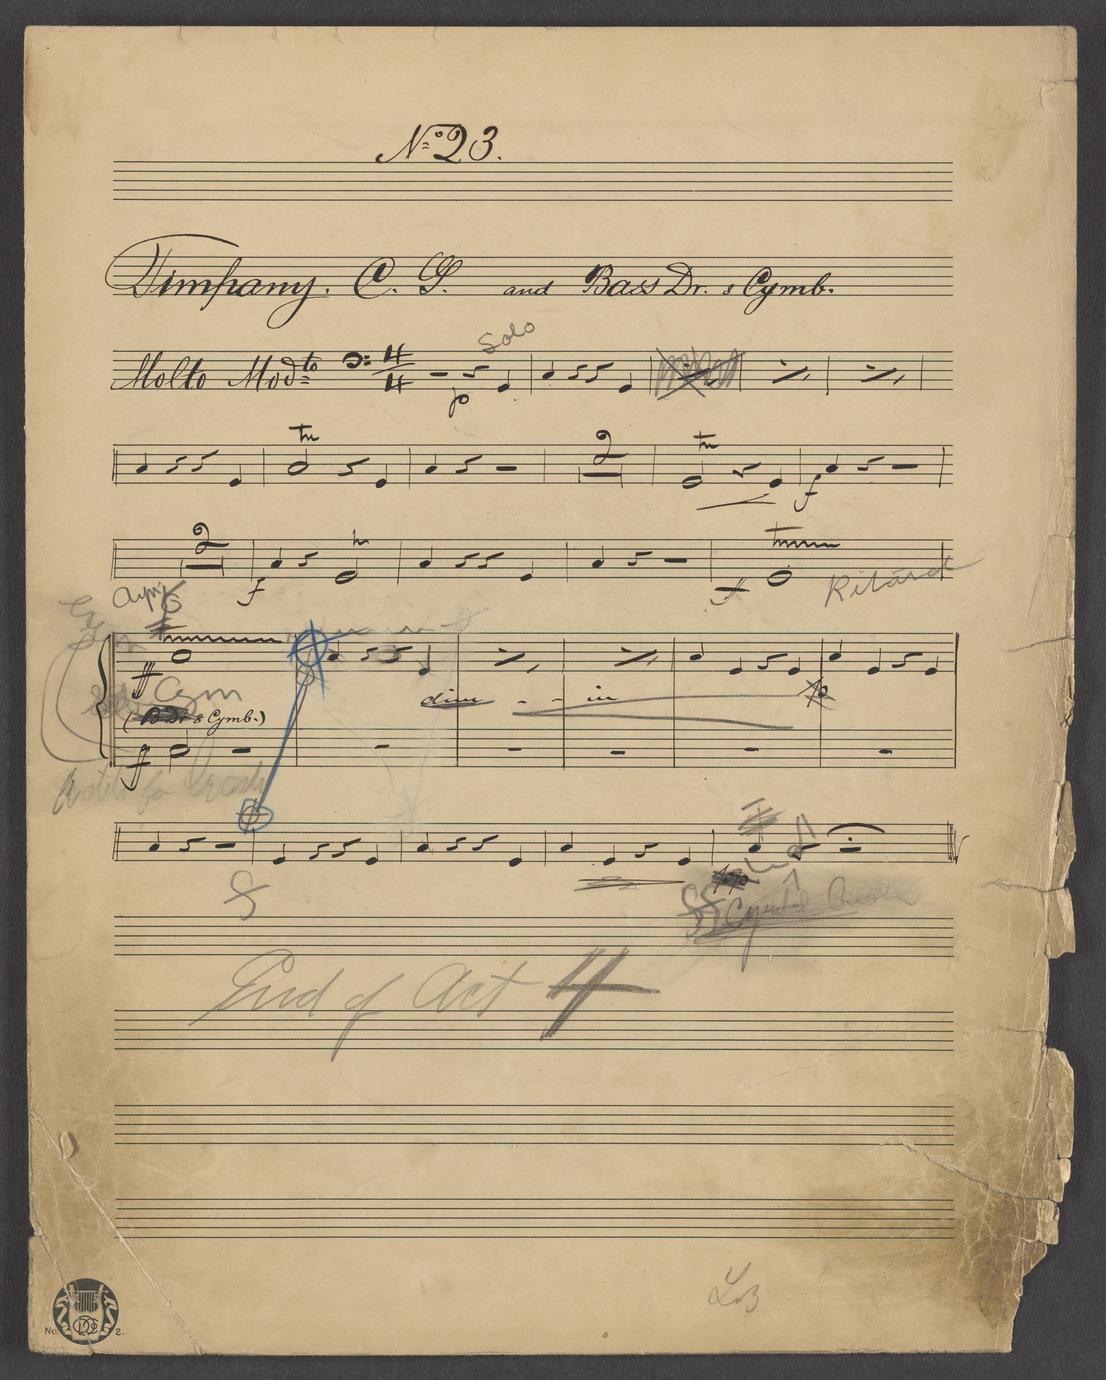 No. 23.
Timpany. C. G. and Bass Dr. & Cymb.
Solo
Molto Modto 4/4
p
tr
2
tr
f
2
tr
f
tr
ff
Ritard
ff
Cym
dim - - in
p
(B Dr & Cymb.)
ff
for
f
ff Cymbal
End of Act 4
LB
No. 2.